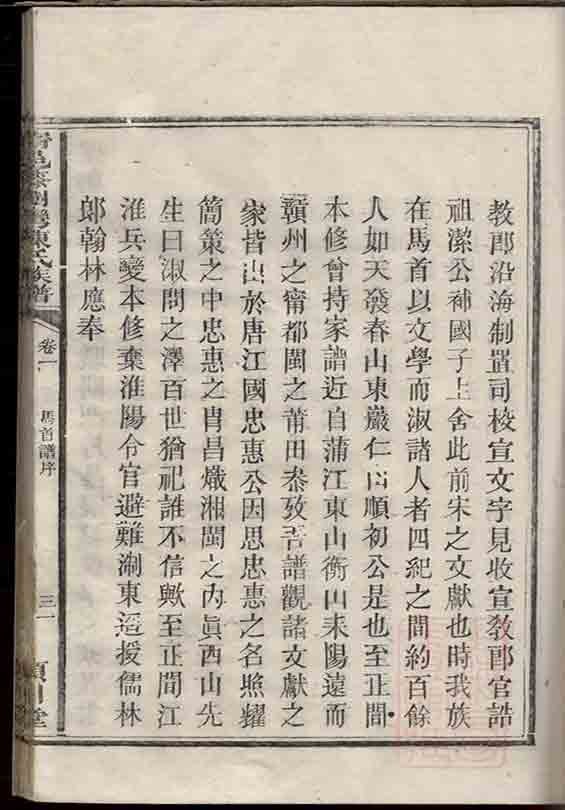 教郎沿海制置司校宣文字見收宣教郎官誥
祖潔公補國子上舍此前宋之文獻也時我族
在馬首以文學而淑諸人者四紀之間約百餘
人如天發春山東巖仁山順初公是也至正間
本修曾持家譜近自蒲江東山衡山耒陽遠而
贛州之甯都閩之莆田叅攷吾譜觀諸文獻之
家皆出於唐江國忠惠公因思忠惠之名照耀
簡策之中忠惠之胄昌熾湘閩之內眞西山先
生曰淑問之澤百世猶祀誰不信歟至正間江
淮兵變本修棄淮陽令官避難淛東遥授儒林
郎翰林應奉
陳氏族譜
卷一
馬首譜序
三一
潁川堂